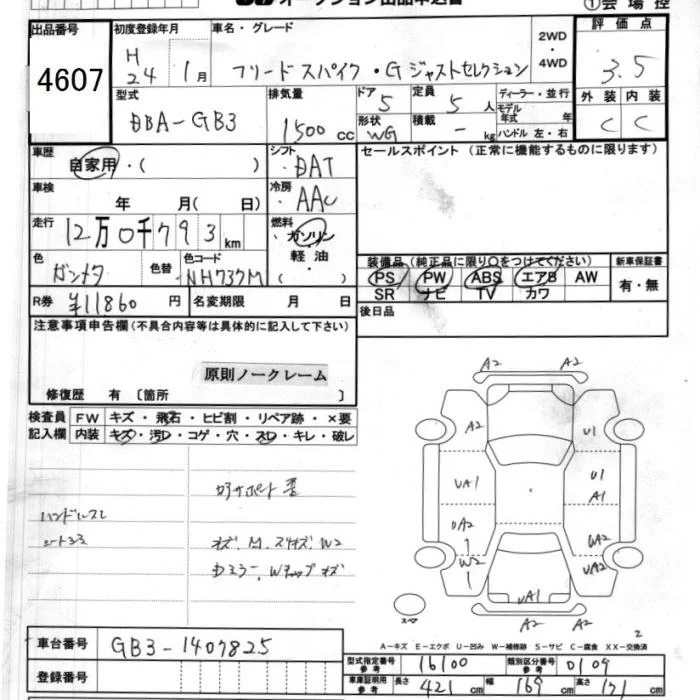 オークション出品申込書
①会場控
出品番号 4607
初度登録年月 H24 1月
車名・グレード フリードスパイク・Gジャストセレクション
2WD・4WD
評価点 3.5
外装 C 内装 C
型式 DBA-GB3
排気量 1500 cc
ドア 5 定員 5 人
形状 WG 積載 - kg
ディーラー・並行
モデル年式 年
ハンドル 左・右
車歴 自家用・( )
シフト DAT
冷房 AAC
セールスポイント (正常に機能するものに限ります)
車検 年 月( 日)
走行 12万0千793km
燃料 ガソリン・軽油・( )
色 ガンメタ 色替
色コード NH737M
装備品(純正品に限り○をつけてください)
PS PW ABS エアB AW
SR ナビ TV カワ
新車保証書 有・無
R券 ¥11860 円
名変期限 月 日
後日品
注意事項申告欄(不具合内容等は具体的に記入して下さい)
原則ノークレーム
修復歴 有 〔箇所 〕
検査員記入欄
FW キズ・飛石・ヒビ割・リペア跡・×要
内装 キズ・汚レ・コゲ・穴・スレ・キレ・破レ
ハンドルスレ
A2 A2
A2 U1
UA1 U1
A1
UA2 UA2
W2 UA2
UA1
スペア
A2 A2
2
A-キズ E-エクボ U-凹み W-補修跡 S-サビ C-腐食 XX-交換済
車台番号 GB3-1407825
登録番号
型式指定番号 参考 16100
類別区分番号 参考 0109
車庫証明用 参考 長さ 421 cm 幅 169 cm 高さ 171 cm